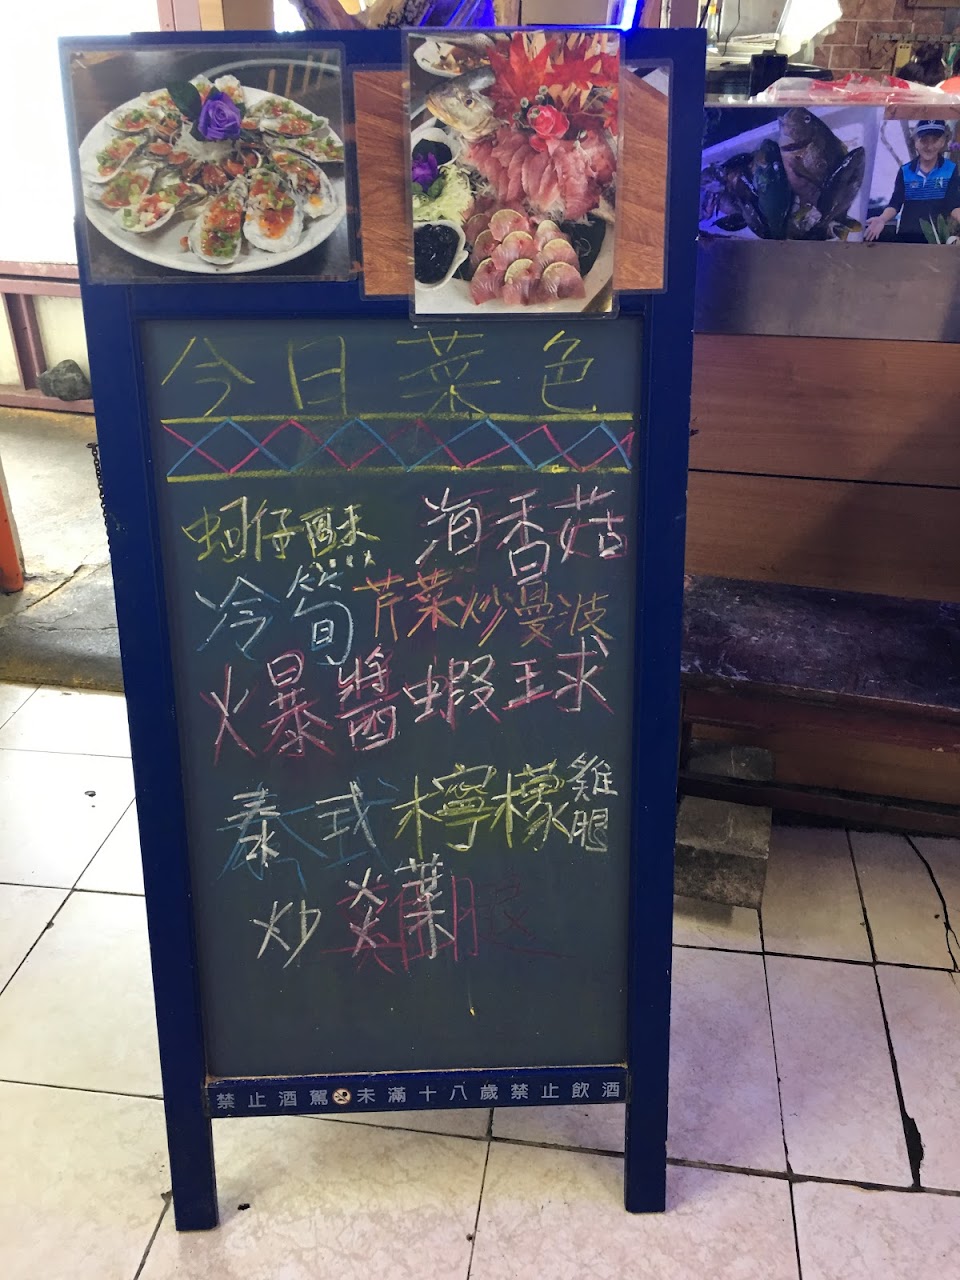 今日菜色
蚵仔酥 海香菇
冷筍 芹菜炒曼波
火暴醬蝦球
泰式檸檬雞腿
炒
禁止酒駕 未滿十八歲禁止飲酒